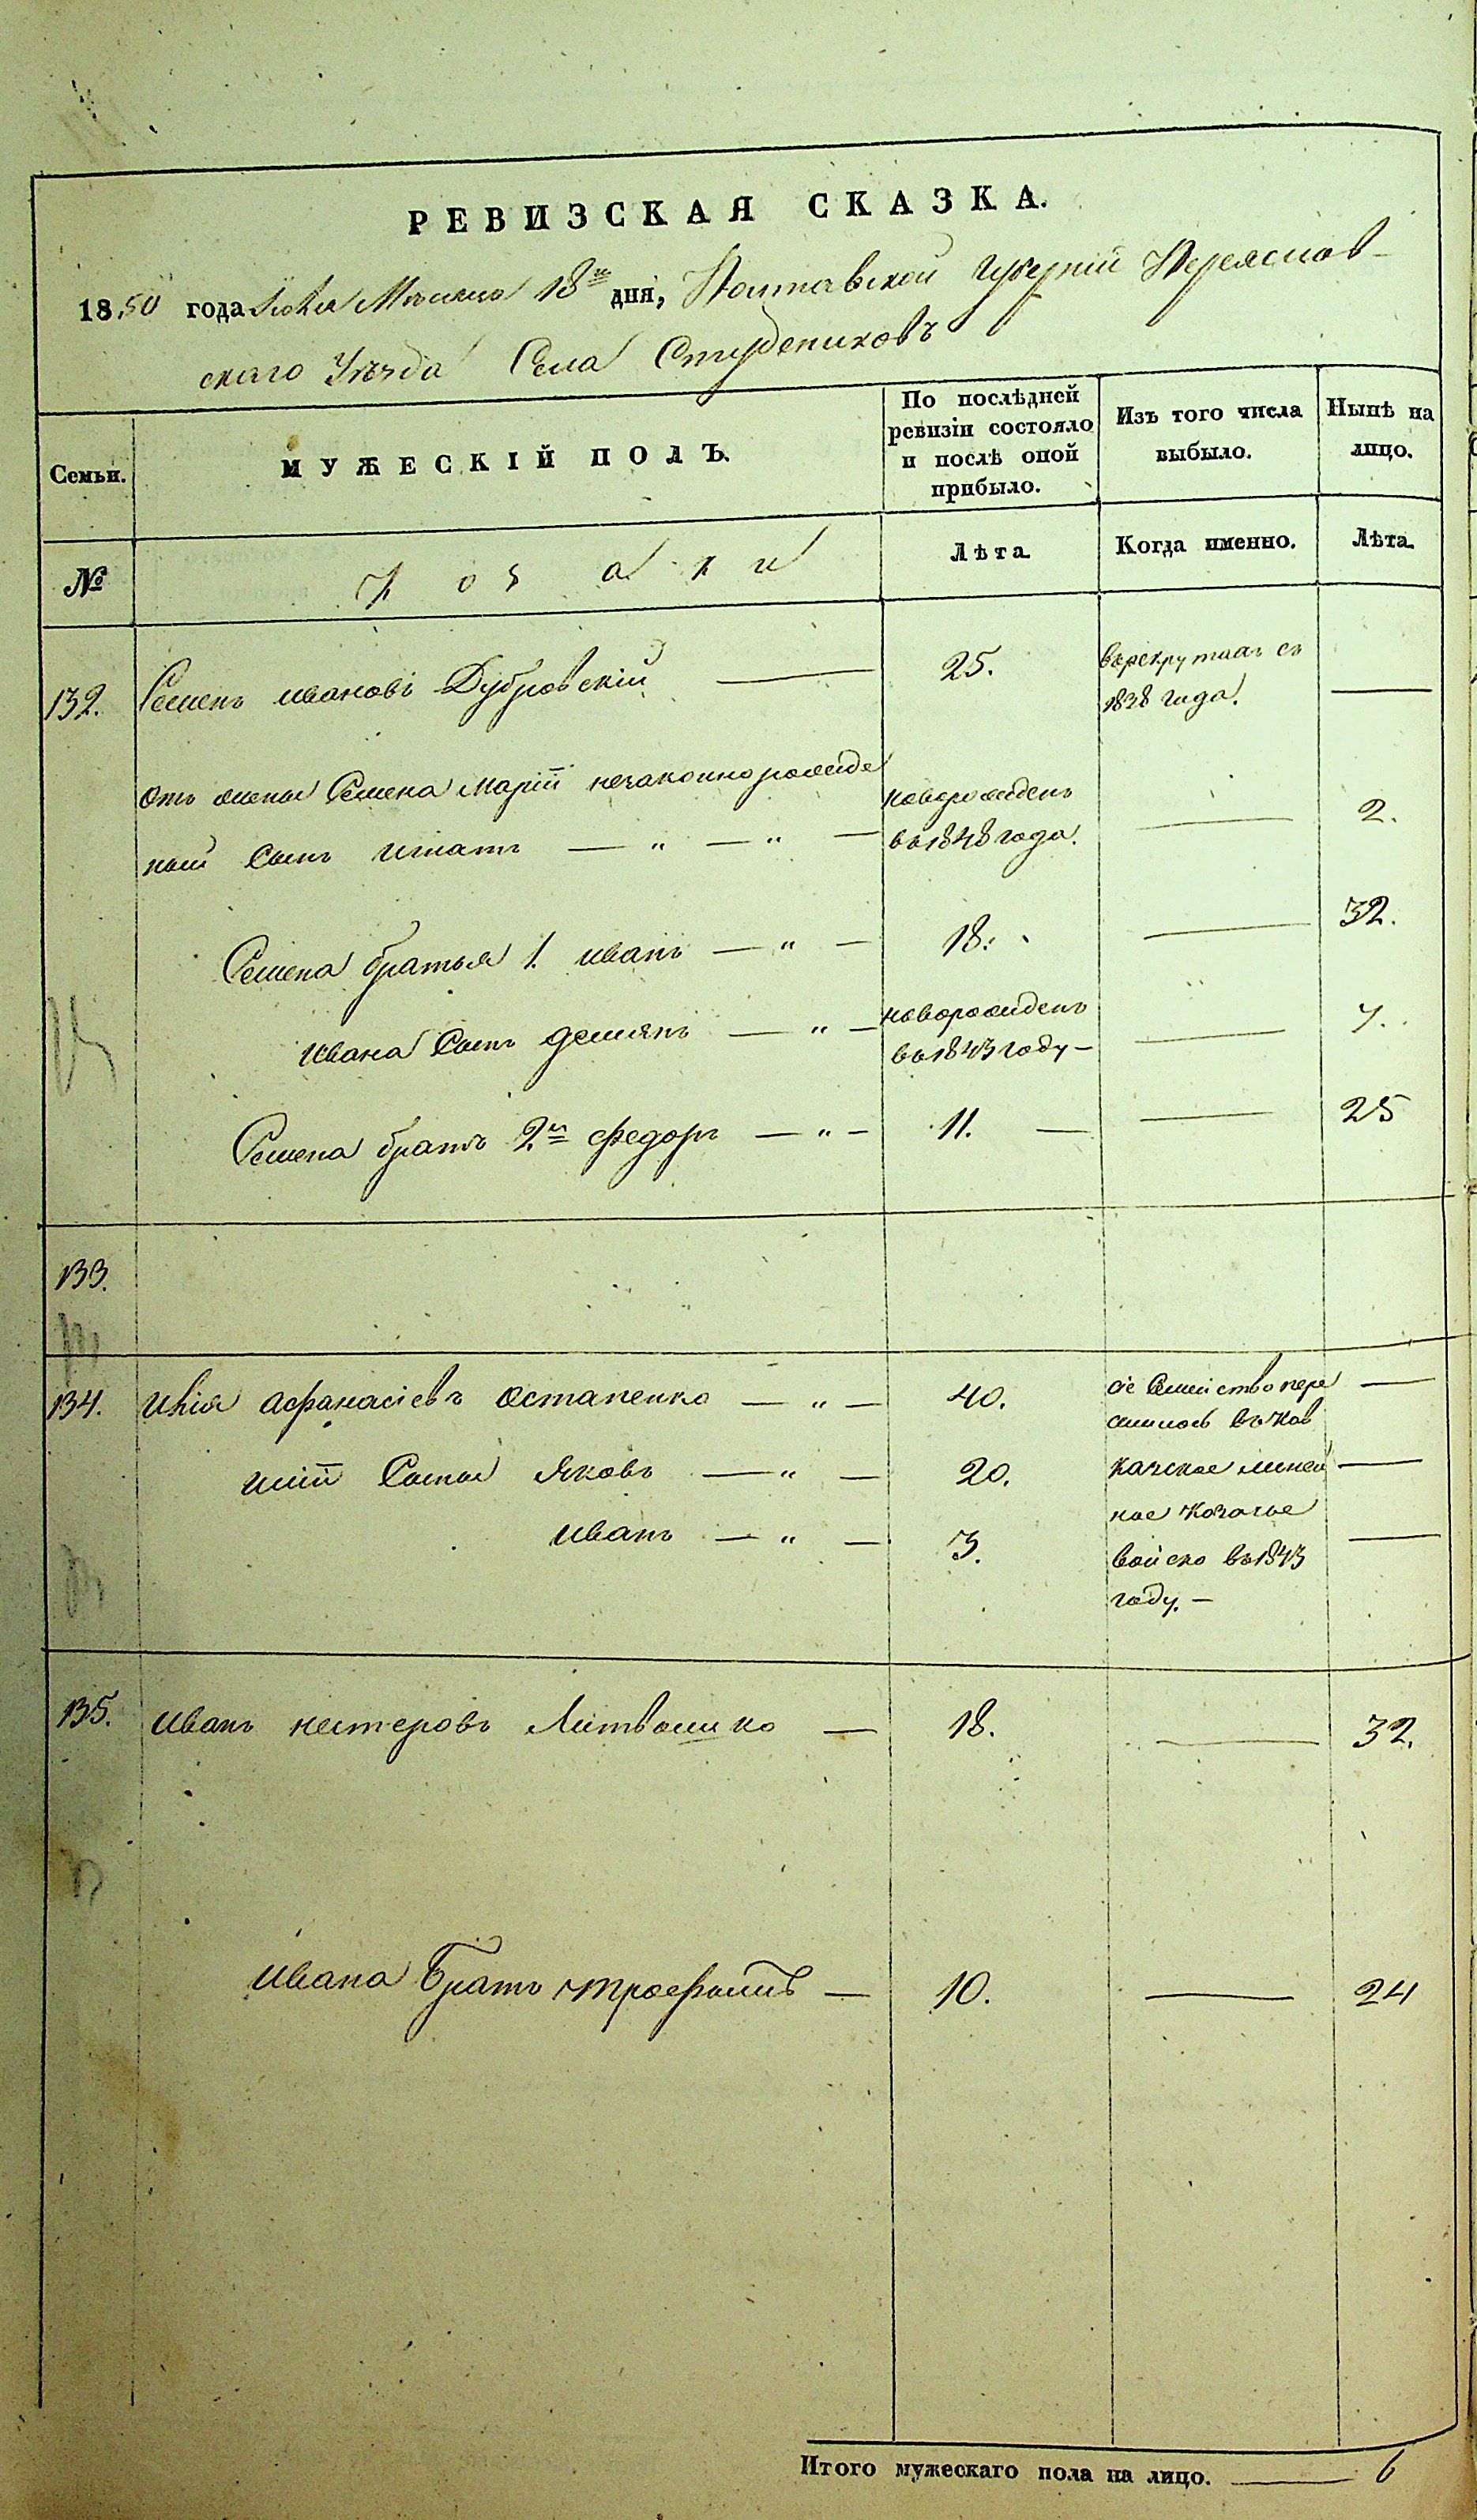 РЕВИЗСКАЯ СКАЗКА.
1850 года Июля Месяца 18го дня, Полтавской Губерніи Переяслав-
скаго Уѣзда Села Студениковъ
Семьи.
МУЖЕСКІЙ ПОЛЪ.
По послѣдней ревизіи состояло и послѣ оной прибыло.
Изъ того числа выбыло.
Нынѣ на лицо.
№
Козаки
Лѣта.
Когда именно.
Лѣта.
132. Семенъ Ивановъ Дубровскій — 25. въ рекрутахъ съ
1838 года. —
Отъ жены Семена Маріи незаконнорожде новорожденъ
ный Сынъ Игнатъ — " — " — въ 1848 года. — 2.
Семена братья 1. Иванъ — " — 18. — 32.
Ивана Сынъ Демянъ — " — новорожденъ
въ 1843 году — — 7.
Семена братъ 2й Федоръ — " — 11. — — 25
133.
134. Илія Афанасіевъ Остапенко — " — 40. сіе Семейство пере —
селилось въ Кав
Иліи Сыны Яковъ — " — 20. казское линей —
ное Козачье
Иванъ — " — 3. войско въ 1843 —
году. —
135. Иванъ Нестеровъ Литвишко — 18. — 32.
Ивана Братъ Трофимъ — 10. — 24
Итого мужескаго пола на лицо. — 6